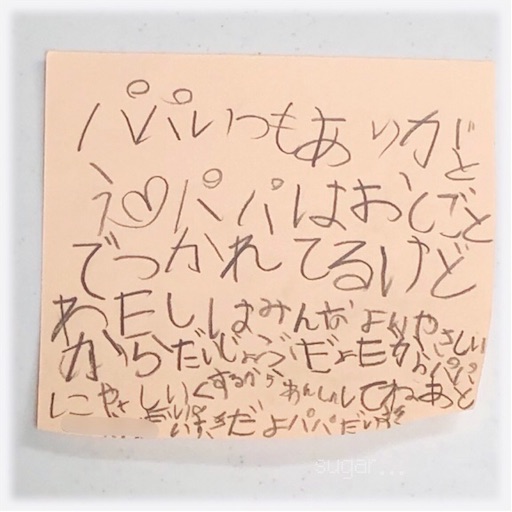 パパいつもありがと
う♡パパはおしごと
でつかれてるけど
わたしはみんなよりやさしい
からだいじょうぶだよだからパパ
にやさしいくするからあんしんしてねあと
だよパパだいすき
sugar...